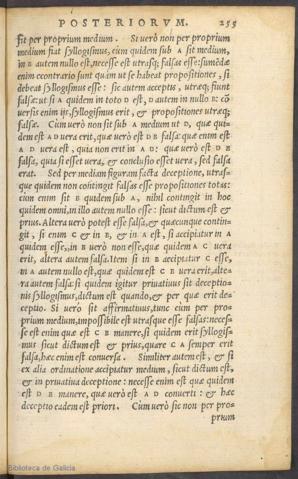 POSTERIORVM. 255
fit per proprium medium. Si verò non per proprium
medium fiat syllogismus, cùm quidem sub A sit medium,
in B autem nullo est, necesse est utrasq; falsas esse: sumēdæ
enim ècontrario sunt quàm ut se habeat propositiones, si
debeat syllogismus esse: sic autem acceptis, utræq; fiunt
falsæ: ut si A quidem in toto D est, D autem in nullo B: cō
versis enim ijs, syllogismus erit, & propositiones utræq;
falsæ. Cùm verò non sit sub A medium ut D, quæ qui-
dem est A D vera erit, quæ verò est D B falsa: quæ enim est
A D vera est, quia non erit in A D: quæ verò est D B
falsa, quia si esset vera, & conclusio esset vera, sed falsa
erat. Sed per mediam figuram facta deceptione, utras-
que quidem non contingit falsas esse propositiones totas:
cùm enim sit B quidem sub A, nihil contingit in hoc
quidem omni, in illo autem nullo esse: sicut dictum est &
prius. Altera verò potest esse falsa, & quacunque contin-
git, si enim C & in B, & in A est, si accipiatur in A
quidem esse, in B verò non esse, quæ quidem A C vera
erit, altera autem falsa. Item si in B accipiatur C esse,
in A autem nullo est, quæ quidem est C B vera erit, alte-
ra autem falsa: si quidem igitur privatiuus sit deceptio-
nis syllogismus, dictum est quando, & per quæ erit de-
ceptio. Si verò sit affirmatiuus, tunc cùm per pro-
prium medium, impossibile est utrasque esse falsas: neces-
se est enim quæ est C B manere, si quidem erit syllogis-
mus sicut dictum est & prius, quare C A semper erit
falsa, hæc enim est conuersa. Similiter autem est, & si
ex alia ordinatione accipiatur medium, sicut dictum est,
& in privatiua deceptione: necesse enim est quæ quidem
est D B manere, quæ verò est A D conuerti: & hæc
deceptio eadem est priori. Cùm verò sic non per pro-
prium
Biblioteca de Galicia